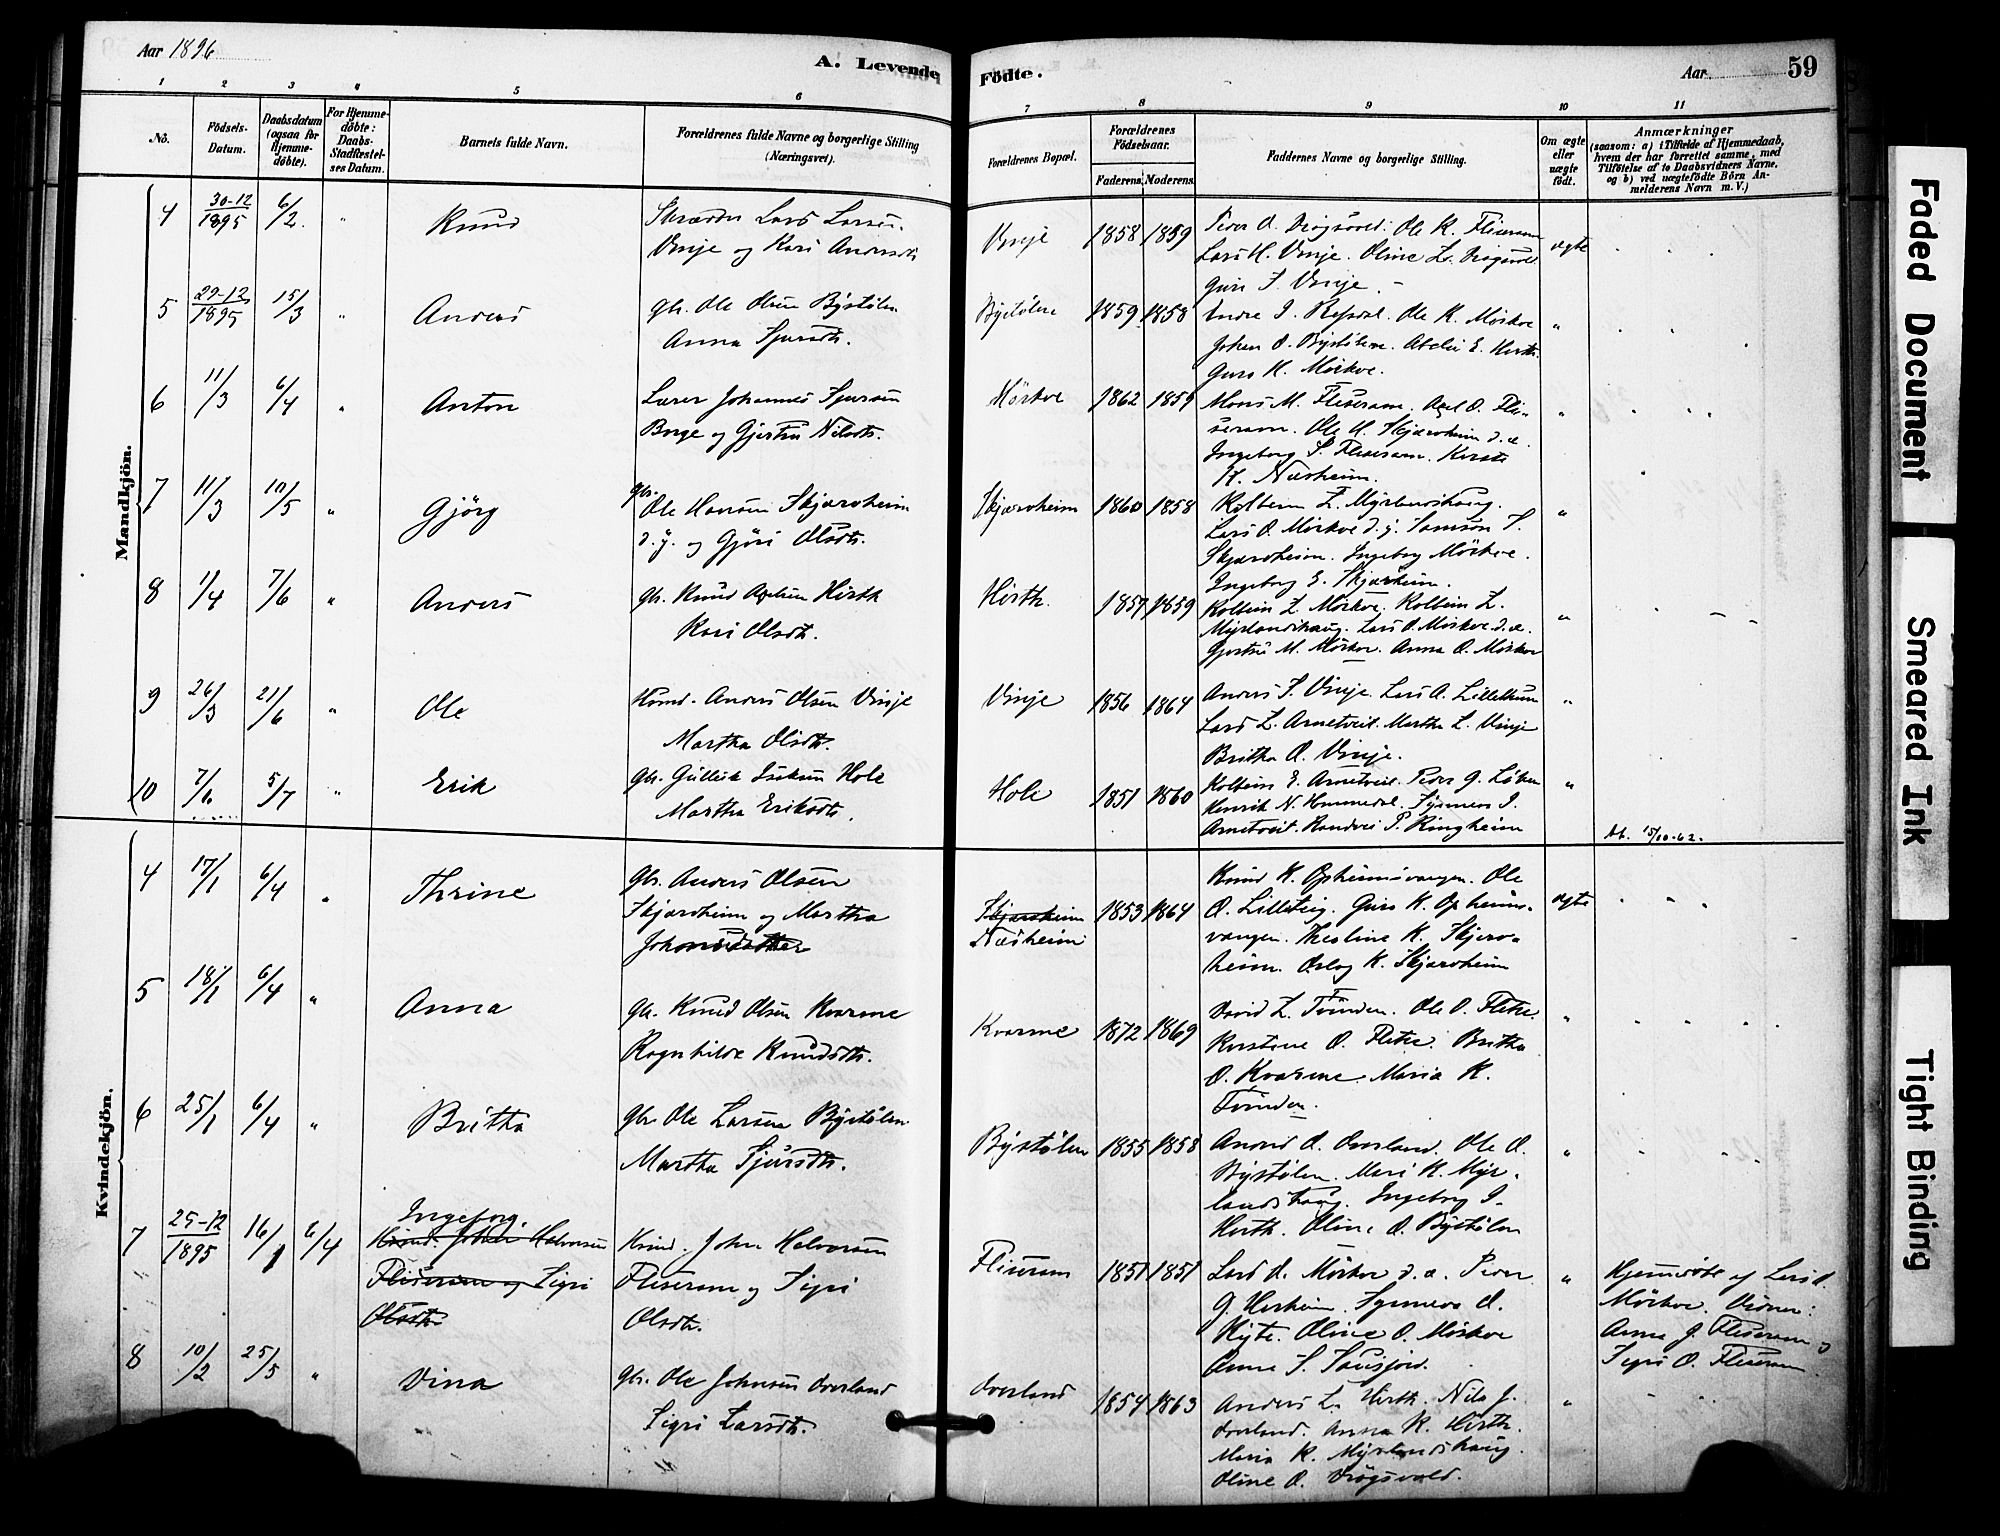 Aar 1896
A. Levende
Födte.
Aar
59
1 2 3 4 5 6 7 8 9 10 11
No.
Födsels-
Datum.
Daabsdatum
(ogsaa for
Hjemme-
döbte).
For Hjemme-
döbte:
Daabs-
Stadfæstel-
ses Datum.
Barnets fulde Navn.
Forældrenes fulde Navne og borgerlige Stilling
(Næringsvei).
Forældrenes Bopæl.
Forældrenes
Födselsaar.
Faderens.
Moderens.
Faddernes Navne og borgerlige Stilling.
Om ægte
eller
uægte
födt.
Anmærkninger
(saasom: a) i Tilfælde af Hjemmedaab,
hvem der har forrettet samme, med
Tilföielse af to Daabsvidners Navne,
og b) ved uægtefödte Börn An-
melderens Navn m. V.)
Mandkjön.
4 30-12/1895 6/2 " Knud
Skrædder Lars Larsen
Vinje og Kari Andersdt.
Vinje 1858 1859
Ole K. Fliseram
Lars H. Vinje. Oline L.
Guri S. Vinje.
ægte
5 29-12/1895 15/3 " Anders
gbr. Ole Olsen Bystølen
Anna Sjursdt.
Bystølen 1859 1858
Endre I. Repdal. Ole K. Mørkve
Johan O. Bystølen. E. Hirth.
Guro K. Mørkve.
"
6 11/3 6/4 " Anton
Lærer Johannes Sjursen
Borge og Gjertru Nilsdt.
Mørkve 1862 1859
Mons M. Fliseram. Axel O. Fli-
seram. Ole H. Skjærvheim d.æ.
Ingeborg S. Fliseram. Kirsti
K. Næsheim.
"
7 11/3 10/5 " Gjørg
gbr.
Ole Hansen Skjærvheim
d.y. og Gjøri Olsdt.
Skjærvheim 1860 1858
Kolbein L. Myrlandshaug.
Lars O. Mørkve d.y. Samson S.
Skjærvheim. Ingeborg Mørkve.
Ingeborg E. Skjærvheim.
"
8 1/4 7/6 " Anders
gbr. Knud Axelsen Hirth
Kari Olsdt.
Hirth. 1857 1859
Kolbein L. Mørkve. Kolbein L.
Myrlandshaug. Lars O. Mørkve d.æ.
Gjertru M. Mørkve. Anna O. Mørkve
"
9 26/3 21/6 " Ole
Husmd. Anders Olsen Vinje
Martha Olsdt.
Vinje 1856 1864
Anders S. Vinje. Lars A. Lilletkun
Lars L. Arnetveit. Martha L. Vinje
Britha O. Vinje.
"
10 7/6 5/7 " Erik
gbr. Gullik Hole
Martha Eriksdt.
Hole 1851 1860
Kolbein E. Arnetveit. Peder G. Løken
Henrik N. Hommedal. Synneva I.
Arnetveit. Randvei P. Ringheim
"
15/10-62.
Kvindekjön.
4 17/1 6/4 " Thrine
gbr. Anders Olsen
Skjærvheim og Martha
Johannesdatter
Skjærvheim
Næsheim
1853 1864
Knud K. Opheimsvangen. Ole
O. Lilleteig. Guro K. Opheims-
vangen. K. Skjerv-
heim. K. Skjærvheim
ægte
5 18/1 6/4 " Anna
gbr. Knud Olsen Kvarme
Ragnhilde Knudsdt.
Kvarme 1872 1869
David L. Tvinden. Ole O. Fletre.
O. Fletre. Britha
O. Kvarme. Maria K.
Tvinden.
"
6 25/1 6/4 " Britha
gbr. Ole Larsen Bystølen
Martha Sjursdt.
Bystølen 1855 1858
O. Overland. Ole O.
Bystølen. Mari K. Myr-
landshaug. Ingeborg I.
Hirth. Oline O. Bystølen
"
7 25-12/1895 16/1 6/4
Ingeborg.
Husmd. John Halvorsen
Fliseram og Sigri
Olsdt.
Husmd. John Halvorsen
Fliseram og Sigri
Olsdt.
Fliseram 1851 1851
Lars O. Mørkve d.æ. Peder
G. Herheim. Synneva O.
Hyte. Oline O. Mørkve
Anna S.
"
Hjemdøbt af Lars O.
Mørkve. Vidner:
Anna J. Fliseram
Sigri O. Fliseram
8 10/2 25/5 " Dina
gbr. Ole Johnsen Overland
Sigri Larsdt.
Overland 1854 1863
Anders L. Hirth. Nils J.
Overland. Anna K. Hirth.
Maria K. Myrlandshaug.
Oline O.
"
Faded Document
Smeared Ink
Tight Binding